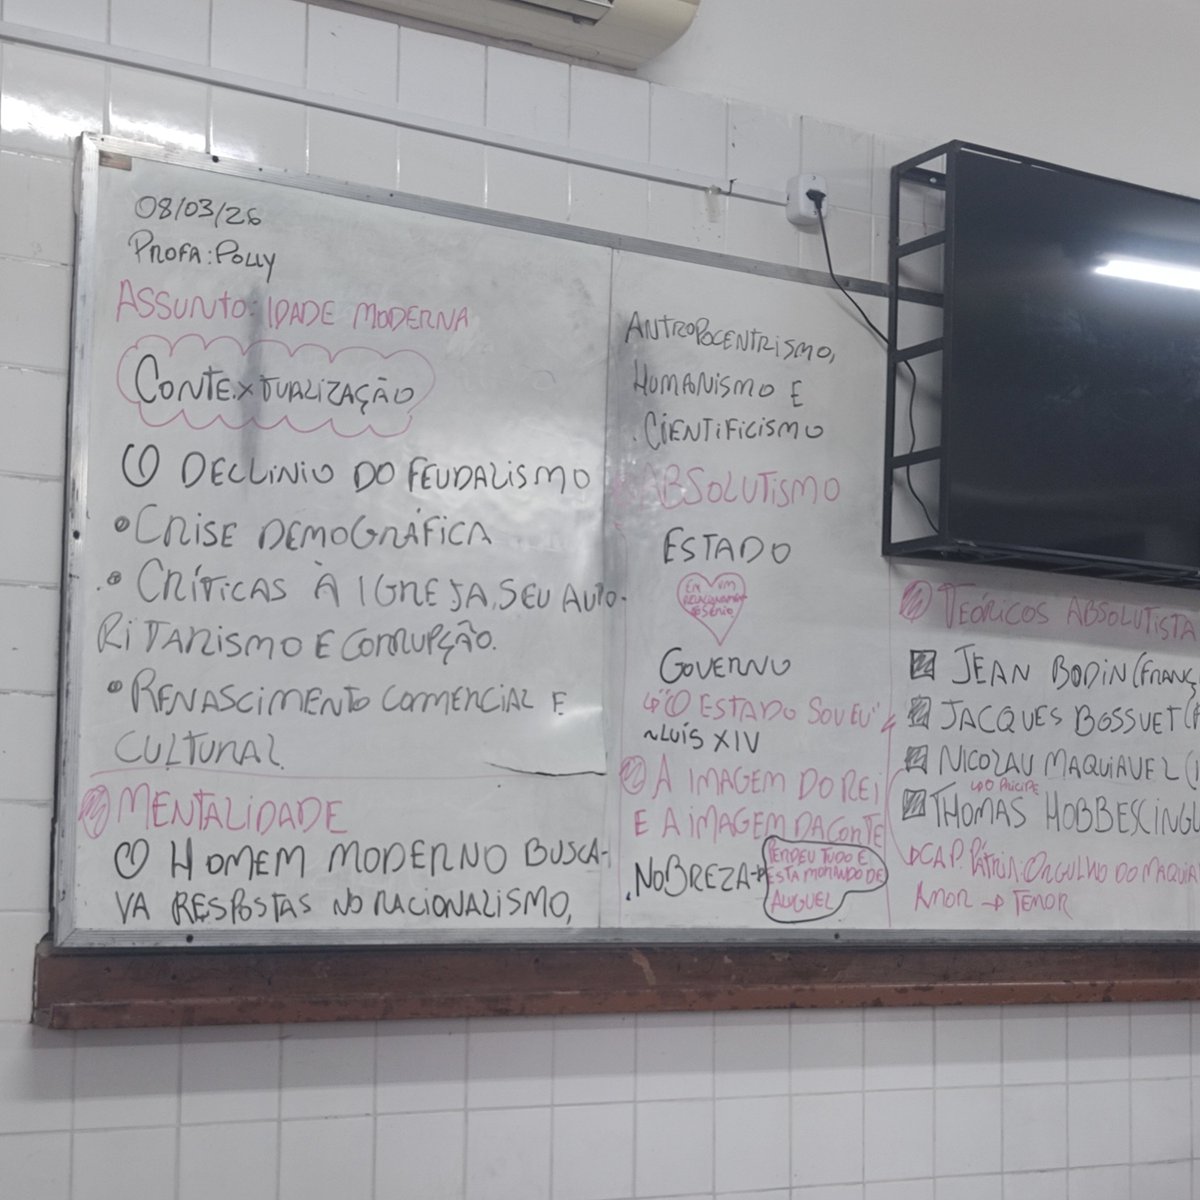 08/03/26
PROFA: POLLY
ASSUNTO: IDADE MODERNA
CONTEXTUALIZAÇÃO
O DECLINIO DO FEUDALISMO
•CRISE DEMOGRÁFICA
• CRÍTICAS À IGREJA, SEU AUTO-
RITARISMO E CORRUPÇÃO.
•RENASCIMENTO COMERCIAL E
CULTURAL
MENTALIDADE
O HOMEM MODERNO BUSCA-
VA RESPOSTAS NO RACIONALISMO,
ANTROPOCENTRISMO,
HUMANISMO E
CIENTIFICISMO
ABSOLUTISMO
ESTADO
EM UM
RELACIONAMENTO
SÉRIO
GOVERNO
↳"O ESTADO SOU EU"
~LUÍS XIV
A IMAGEM DO REI
E A IMAGEM DA CORTE
NOBREZA→
PERDEU TUDO E
ESTA MORANDO DE
ALUGUEL
TEÓRICOS ABSOLUTISTA
JEAN BODIN (FRANÇ
JACQUES BOSSUET (
NICOLAU MAQUIAVEL (
↳O PRÍCIPE
THOMAS HOBBES (INGL
CAP. ORGULHO DO MAQUIA
AMOR → TEMOR